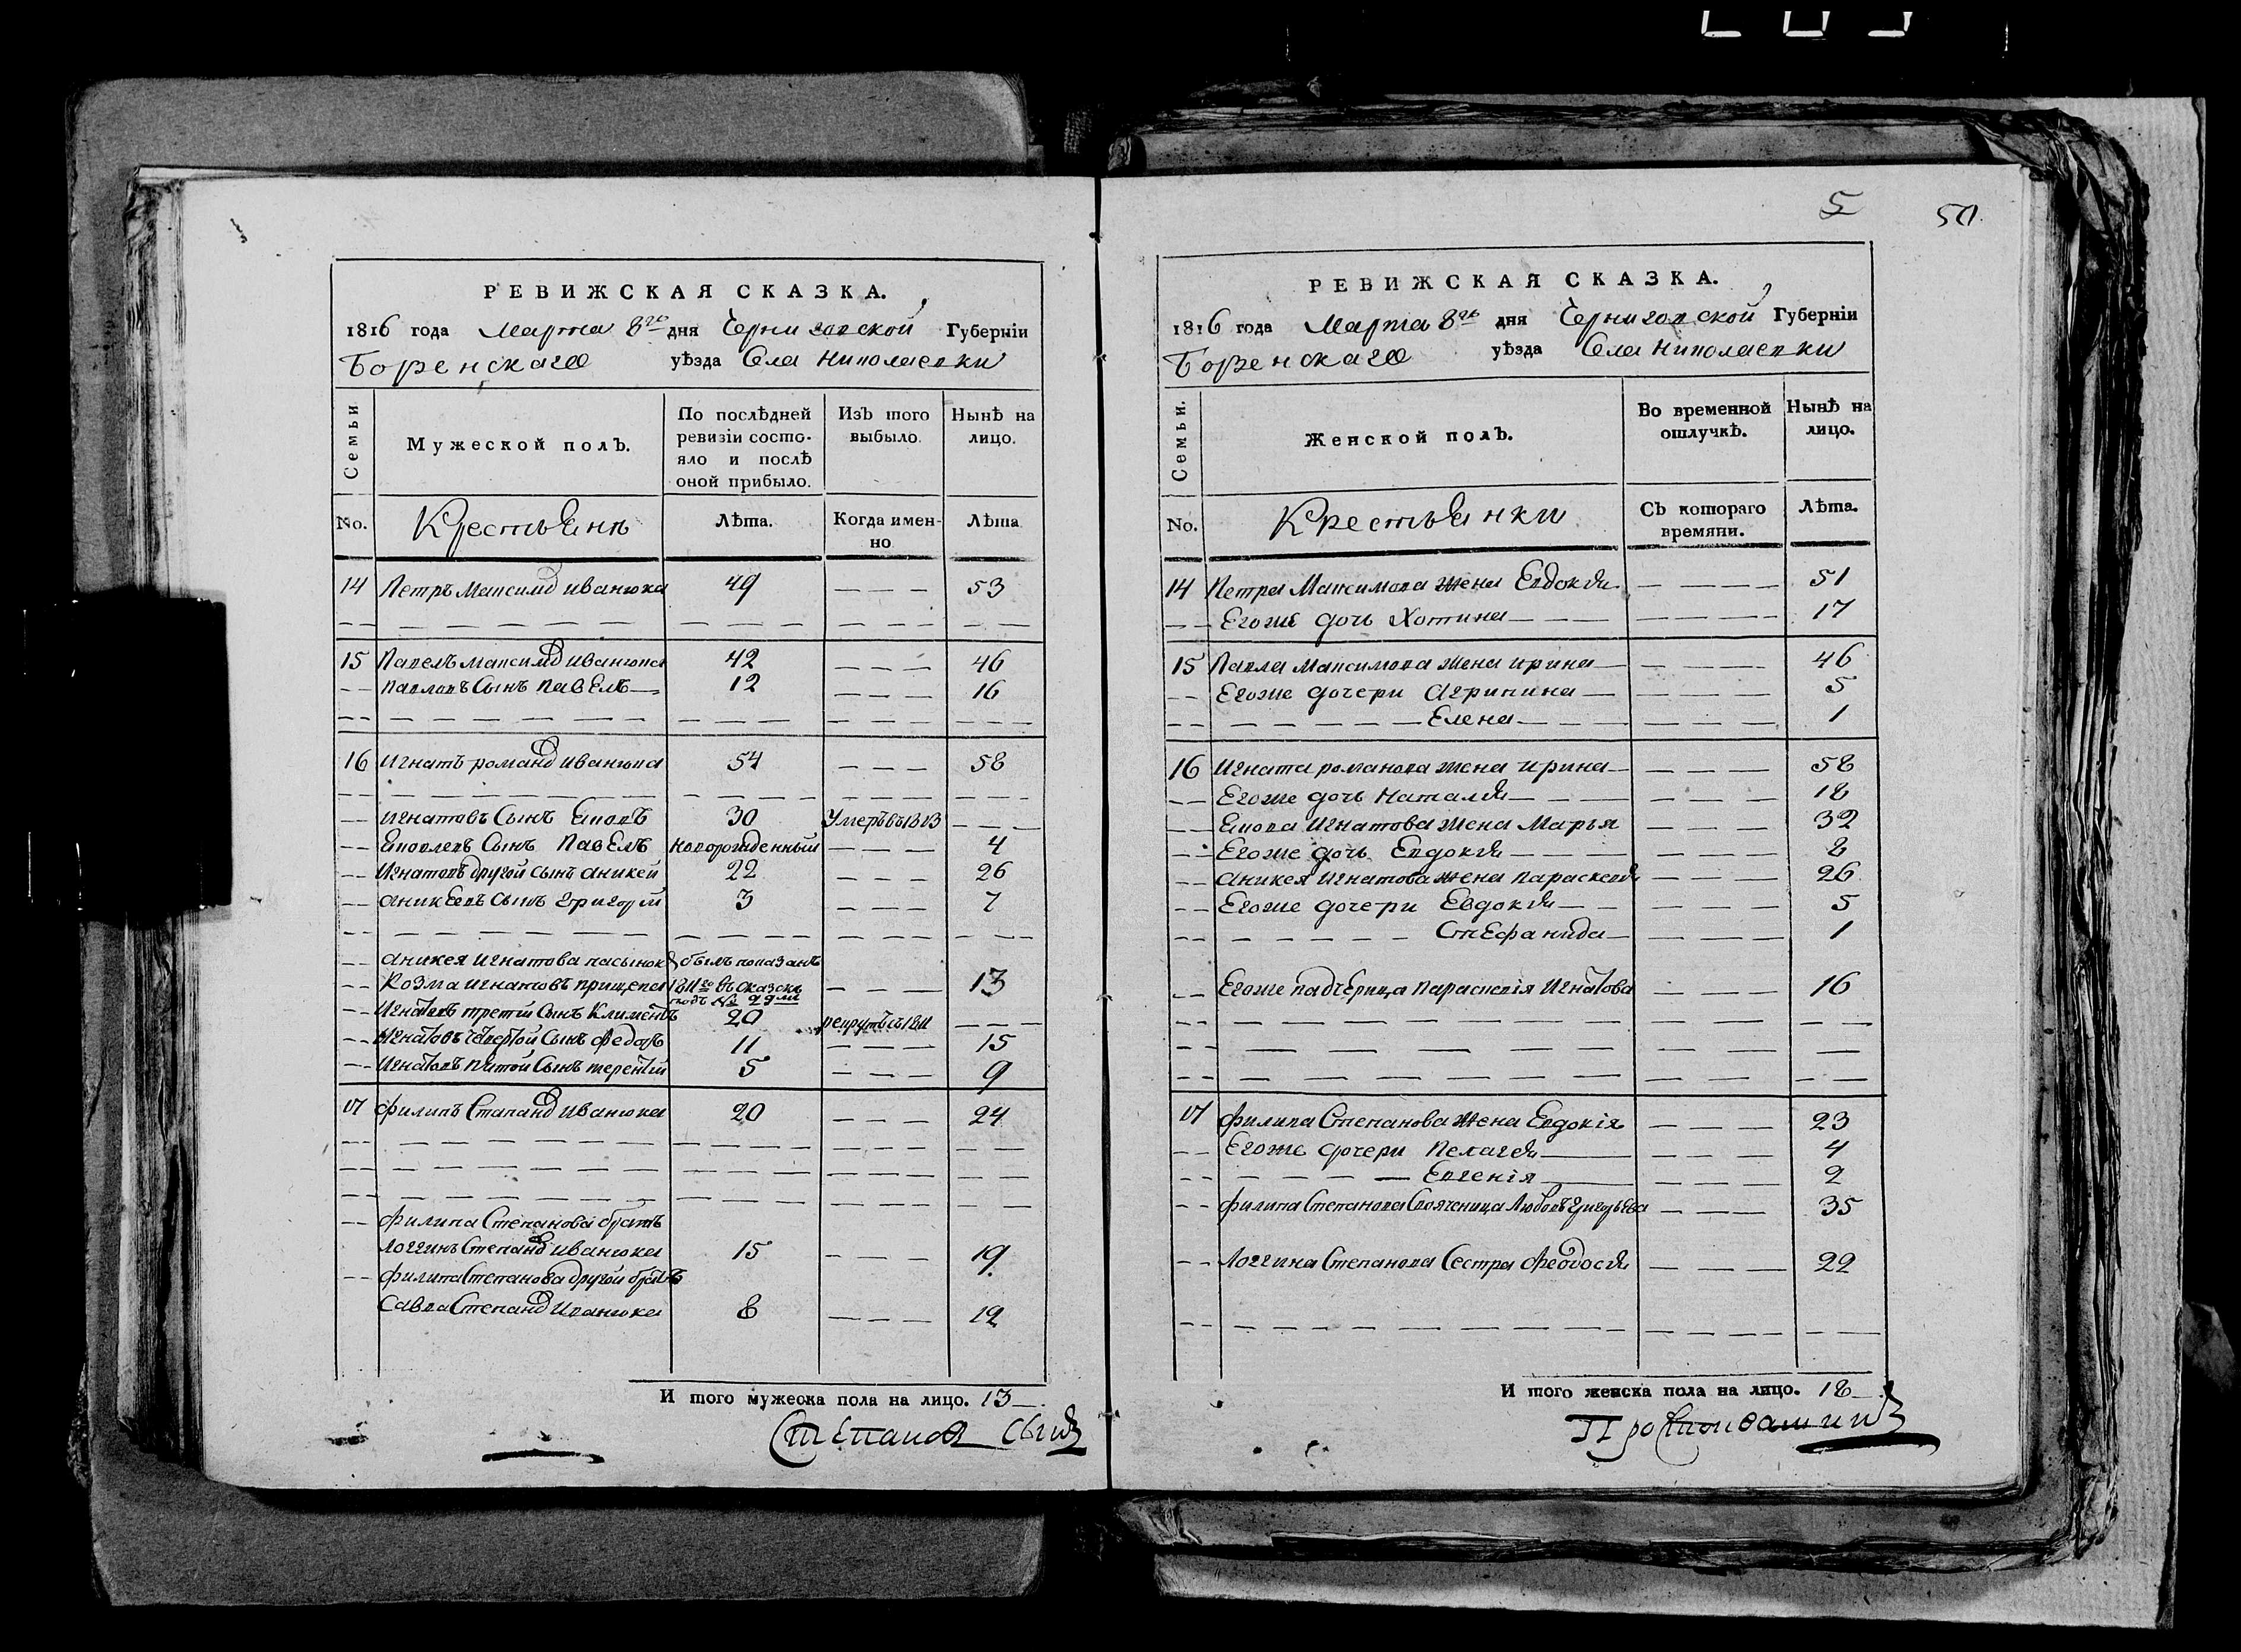 РЕВИЖСКАЯ СКАЗКА.
1816 года Марта 8го дня Черниговской Губерніи
Борзенскаго уѣзда Села Николаевки
Семьи
Мужеской полъ.
По послѣдней ревизіи состояло и послѣ оной прибыло.
Изъ того выбыло.
Нынѣ на лицо.
No. Крестьянъ Лѣта. Когда именно Лѣта
14 Петръ Максимов Иванюка 49 — — — 53
15 Павелъ Максимов Иванюка 42 — — — 46
Павловъ Сынъ Павелъ 12 — — — 16
16 Игнатъ Романов Иванюка 54 — — — 58
Игнатовъ Сынъ Яковъ 30 Умеръ въ 1813 — — —
Яковлевъ Сынъ Павелъ новорожденный — — — 4
Игнатовъ другой сынъ Аникей 22 — — — 26
Аникеевъ Сынъ Григорій 3 — — — 7
Аникея Игнатова пасынок былъ показанъ
Козма Игнатовъ прищепа 1811го въ сказкѣ — — — 13
подъ №
Игнатовъ третій Сынъ Климентъ 20 рекрутъ съ 1811 — — —
Игнатовъ Четвертой Сынъ Федоръ 11 — — — 15
Игнатовъ пятой Сынъ Терентій 5 — — — 9
17 Филипъ Степанов Иванюка 20 — — — 24
Филипа Степанова братъ
Логгинъ Степанов Иванюка 15 — — — 19.
Филипа Степанова другой братъ
Савва Степанов Иванюка 8 — — — 12
И того мужеска пола на лицо. 13
Степанов Сынъ
5 50.
РЕВИЖСКАЯ СКАЗКА.
1816 года Марта 8го дня Черниговской Губерніи
Борзенскаго уѣзда Села Николаевки
Семьи.
Женской полъ.
Во временной отлучкѣ.
Нынѣ на лицо.
No. Крестьянки Съ котораго времяни. Лѣта.
14 Петра Максимова жена Евдокія — — — 51
Егоже дочь Хотина — — — 17
15 Павла Максимова жена Ирина — — — 46
Егоже дочери Агрипина — — — 5
Елена — — — 1
16 Игната Романова жена Ирина — — — 58
Егоже дочь Наталія — — — 18
Якова Игнатова жена Марья — — — 32
Егоже дочь Евдокія — — — 8
Аникея Игнатова жена Параскевія — — — 26
Егоже дочери Евдокія — — — 5
Стефанида — — — 1
Егоже падчерица Параскевія Игнатова — — — 16
17 Филипа Степанова жена Евдокія — — — 23
Егоже дочери Пелагія — — — 4
Евгенія — — — 2
Филипа Степанова Своячница Любовь Григорьева — — — 35
Логгина Степанова Сестра Феодосія — — — 22
И того женска пола на лицо. 18